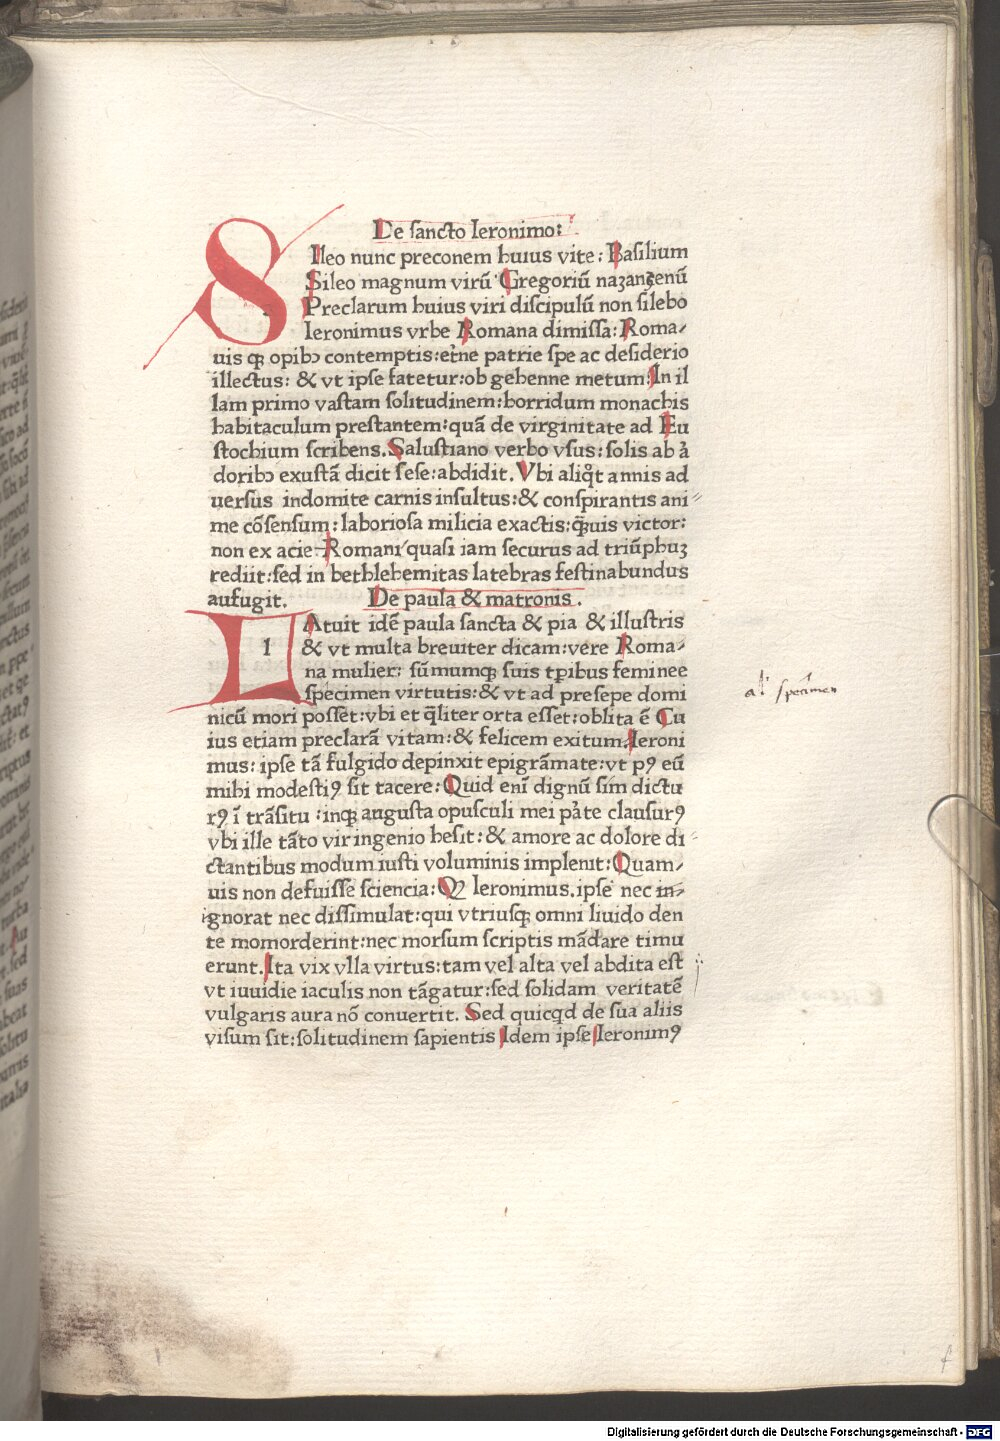 De sancto Ieronimo:
SIleo nunc preconem huius vite: Basilium
Sileo magnum virū Gregoriū nazanzenū
Preclarum huius viri discipulū non silebo
Ieronimus vrbe Romana dimissa: Roma⸗
uis qꝫ opibꝰ contemptis: etne patrie spe ac desiderio
illectus: & vt ipse fatetur: ob gehenne metum: In il
lam primo vastam solitudinem: horridum monachis
habitaculum prestantem: quā de virginitate ad Eu
stochium scribens. Salustiano verbo vsus: solis ab ar̄
doribꝰ exustā dicit sese: abdidit. Vbi aliqͣt annis ad
uersus indomite carnis insultus: & conspirantis ani⸗
me cōsensum: laboriosa milicia exactis: qͣuis victor:
non ex acie Romani quasi iam securus ad triūphuꝫ
rediit: sed in bethlehemitas latebras festinabundus
aufugit. De paula & matronis.
LAtuit idē paula sancta & pia & illustris
& vt multa breuiter dicam: vere Roma⸗
na mulier: sūmumqꝫ suis tꝑibus feminee
specimen virtutis: & vt ad presepe domi
al' specimen
nicū mori posset: vbi et qͣliter orta esset: oblita ē Cu
ius etiam preclarā vitam: & felicem exitum: Ieroni
mus: ipse tā fulgido depinxit epigrāmate: vt pꝰ eū
mihi modestiꝰ sit tacere: Quid enī dignū sim dictu
rꝰ ī trāsitu: inqꝫ augusta opusculi mei pa᷑te clausurꝰ
vbi ille tāto vir ingenio hesit: & amore ac dolore di⸗
ctantibus modum iusti voluminis implenit: Quam⸗
uis non defuisse sciencia: Qꝫ Ieronimus. ipse nec in⸗
ignorat nec dissimulat: qui vtriusqꝫ omni liuido den
te momorderint: nec morsum scriptis mādare timu
erunt. Ita vix vlla virtus: tam vel alta vel abdita est
vt iuuidie iaculis non tāgatur: sed solidam veritatē
vulgaris aura nō conuertit. Sed quicqd de sua aliis
visum sit: solitudinem sapientis Idem ipse Ieronimꝰ
Digitalisierung gefördert durch die Deutsche Forschungsgemeinschaft - DFG